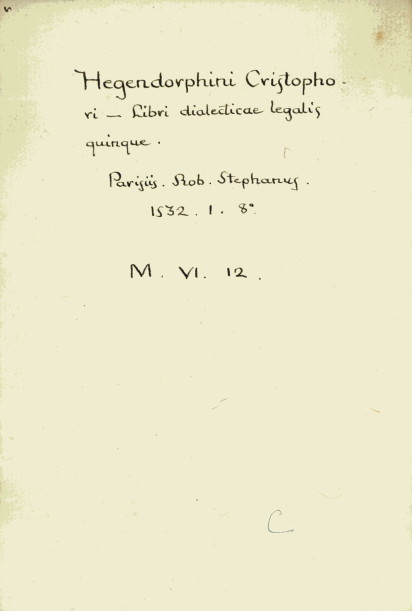 Hegendorphini Cristopho-
ri — Libri dialecticae legalis
quinque.
Parisiis. Rob. Stephanus.
1532. 1. 8°.
M. VI. 12.
C